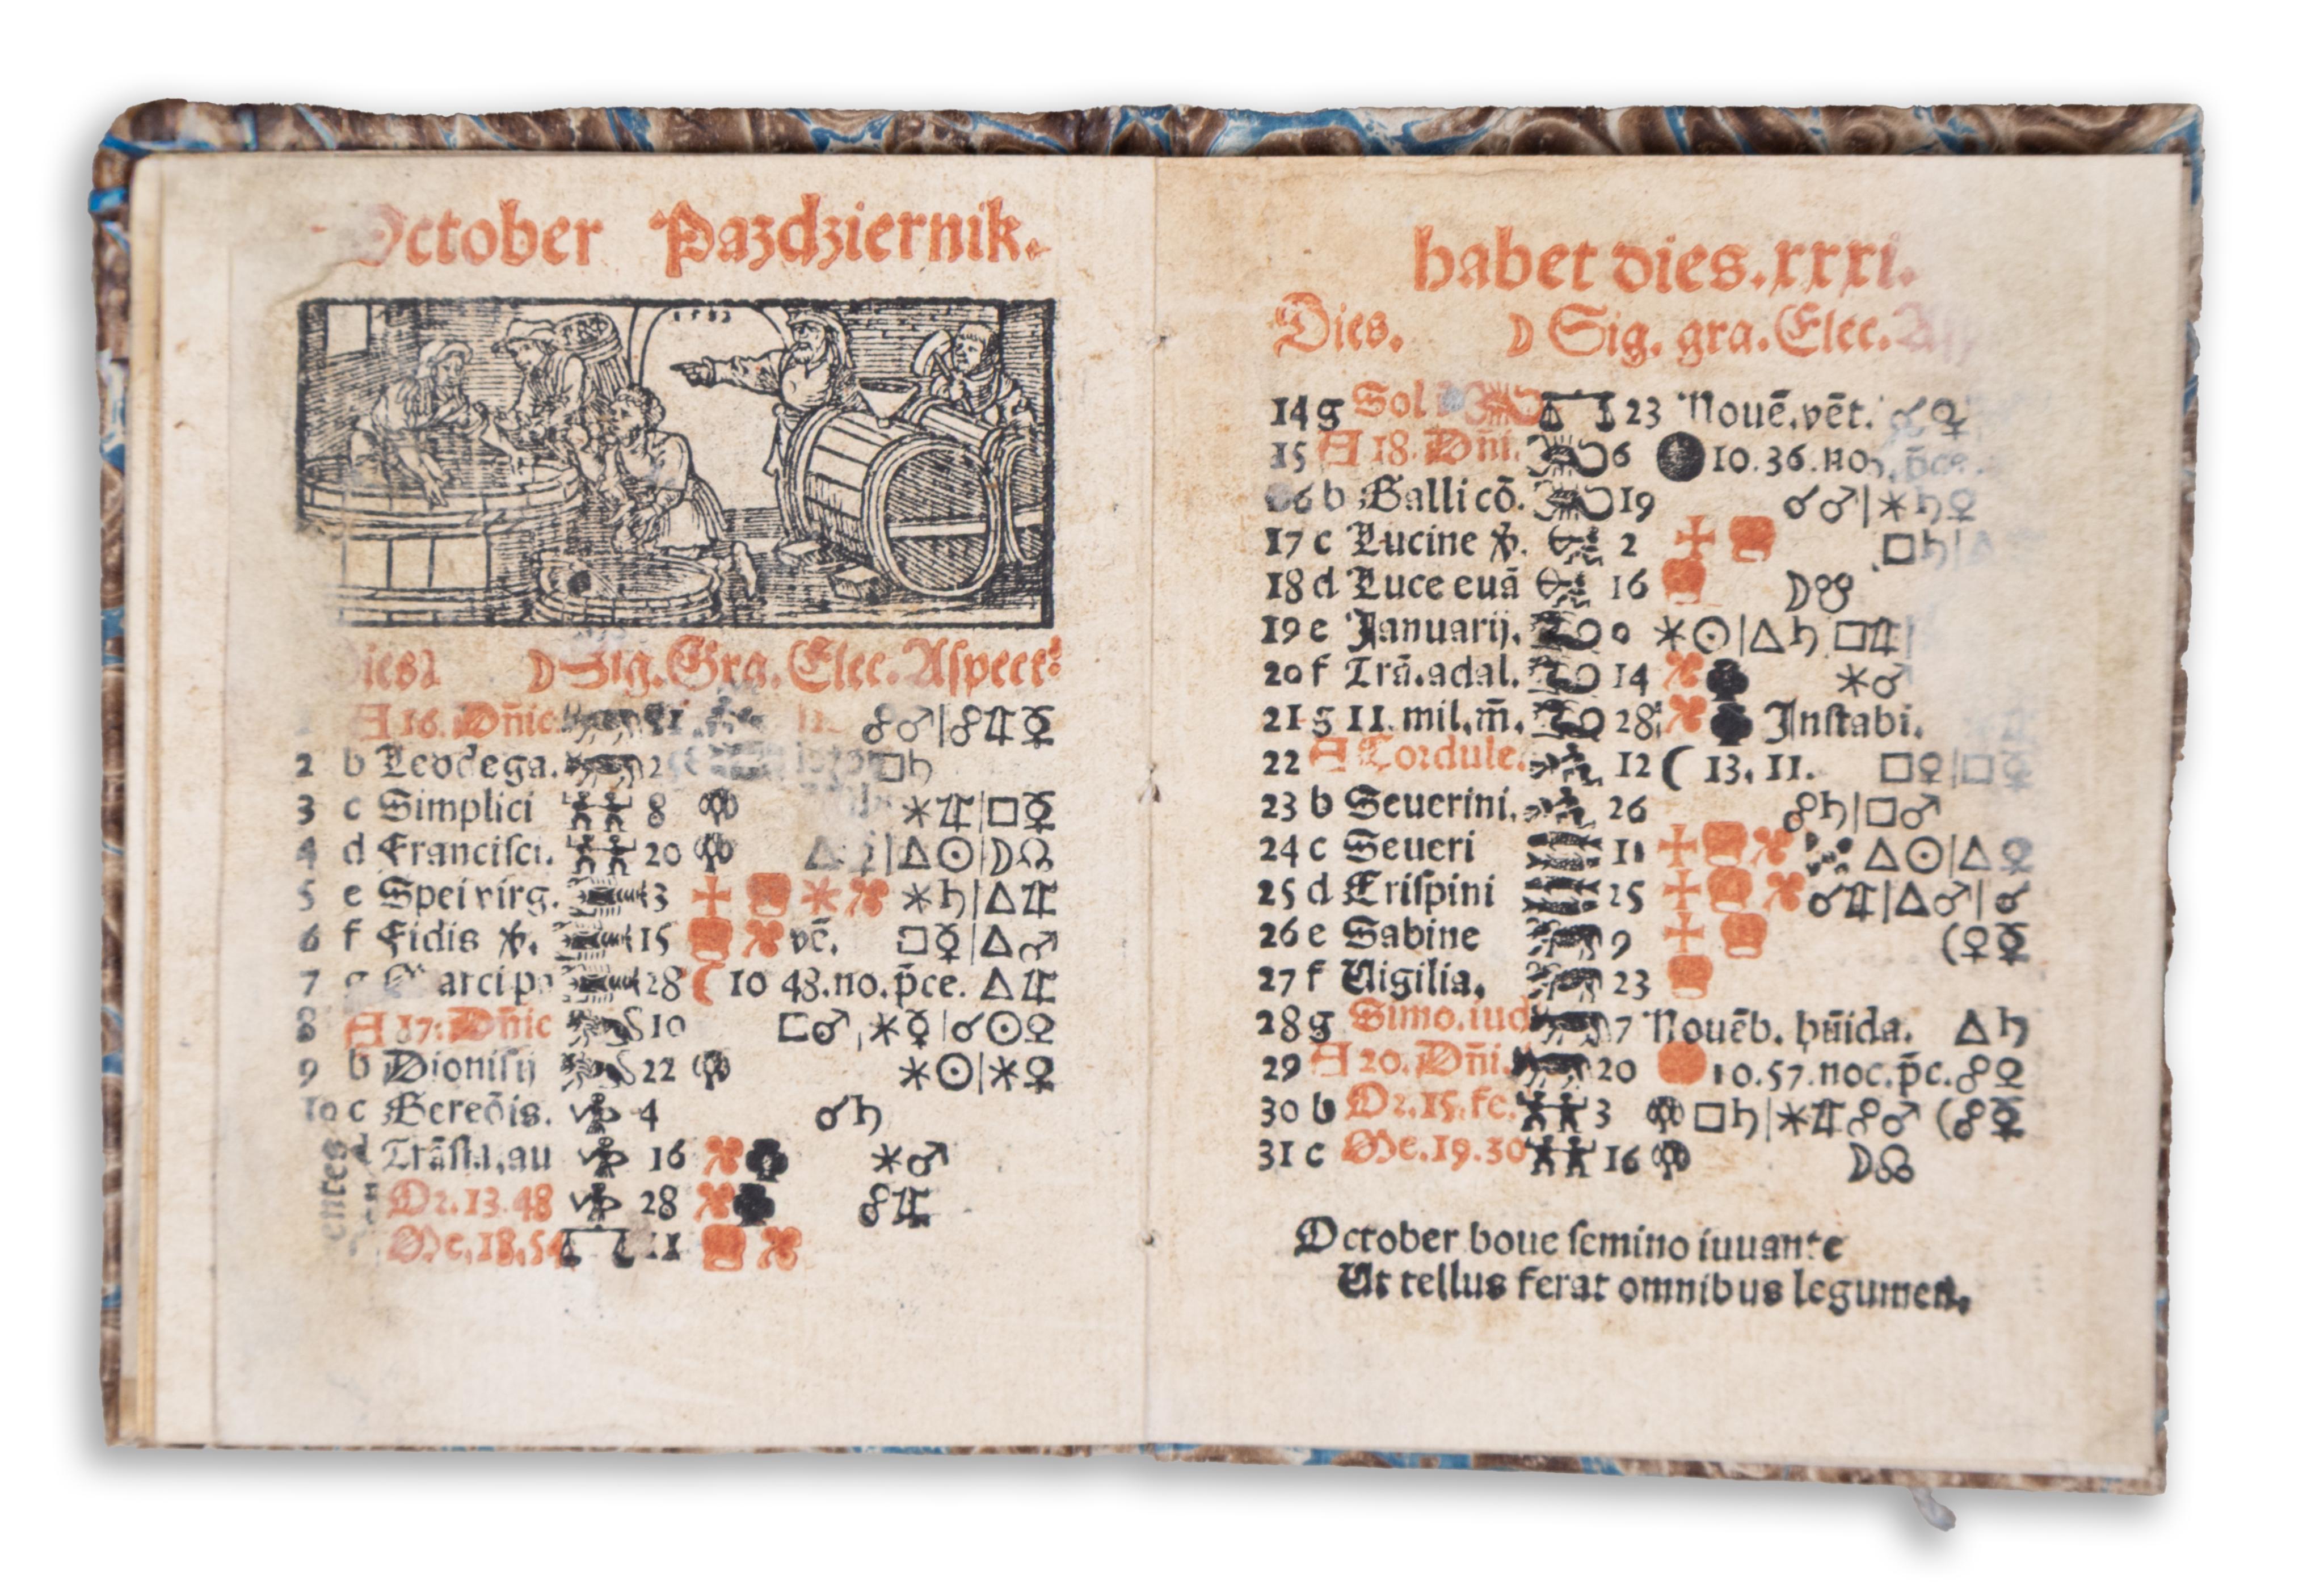 October Pazdziernik.
Dies ☽ Sig. Gra. Elec. Aspect
A 16. Dn̄ic ☍♂|☍♃☿
2 b Leodega. □♄
3 c Simplici 8 ✶♃|□☿
4 d Franciſci. 20 △ |△☉|☽☊
5 e Spei virg. 3 ✶♄|△♃
6 f Fidis 15 vē. □☿|△♂
7 g arci 28 ( 10 48. no. p̄ce. △♃
8 A 17. Dn̄ic 10 □♂,✶☿|☌☉♀
9 b Dioniſij 22 ✶☉|✶♀
10 c Gereōis. 4 ☌♄
d Trāſla. au 16 ✶♂
Or. 13. 48 28 ☍♃
Oc. 18. 54 11
habet dies. xxxi.
Dies. ☽ Sig. gra. Elec.
14 g Sol 23 Nouē. vēt. ☌♀
15 A 18. Dn̄i. 6 10. 36. no. p̄ce.
6 b Galli cō. 19 ☌♂|✶♄♀
17 c Lucine 2 □♄|△
18 d Luce euā 16 ☽☋
19 e Januarij. 0 ✶☉|△♄ □♃|
20 f Trā. adal. 14 ✶♂
21 g 11. mil. m̄. 28 Inſtabi.
22 A Cordule. 12 ( 13. 11. □♀|□☿
23 b Seuerini. 26 ☍♄|□♂
24 c Seueri 11 △☉|△♀
25 d Criſpini 25 ☌♃|△♂|☌
26 e Sabine 9 (♀☿
27 f Uigilia. 23
28 g Simo. iud 7 Nouēb. hūida. △♄
29 A 20. Dn̄i. 20 10. 57. noc. p̄c. ☍♀
30 b Or. 15. fe. 3 □♄|✶♃☍♂ (☍☿
31 c Oc. 19. 30 16 ☽☊
October boue ſemino iuuante
Ut tellus ferat omnibus legumen.